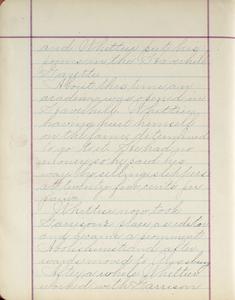 and Whittier put his
poems in the Haverhill
Gazette.
About this time an
academy was opened in
Haverhill. Whittier,
having hurt himself
on the farm, determined
to go to it. He had no
money, so he paid his
way by selling slippers
at twenty five cents per
pair.
Whittier now took
Garrison's place as editor
and became a
and after
wards moved to
After a while Whittier
worked with Garrison